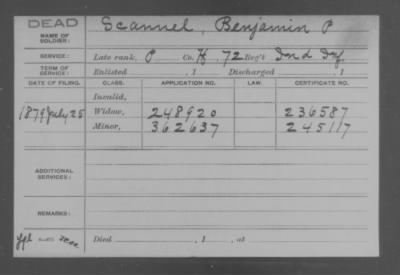 DEAD
NAME OF SOLDIER: Scannel, Benjamin P
SERVICE: Late rank, P Co. H, 72 Reg't Ind Inf
TERM OF SERVICE: Enlisted , 1 Discharged , 1
DATE OF FILING. CLASS. APPLICATION NO. LAW. CERTIFICATE NO.
Invalid,
1879 July 25 Widow, 248920 236587
Minor, 362637 245117
ADDITIONAL SERVICES:
REMARKS:
Died , 1 , at